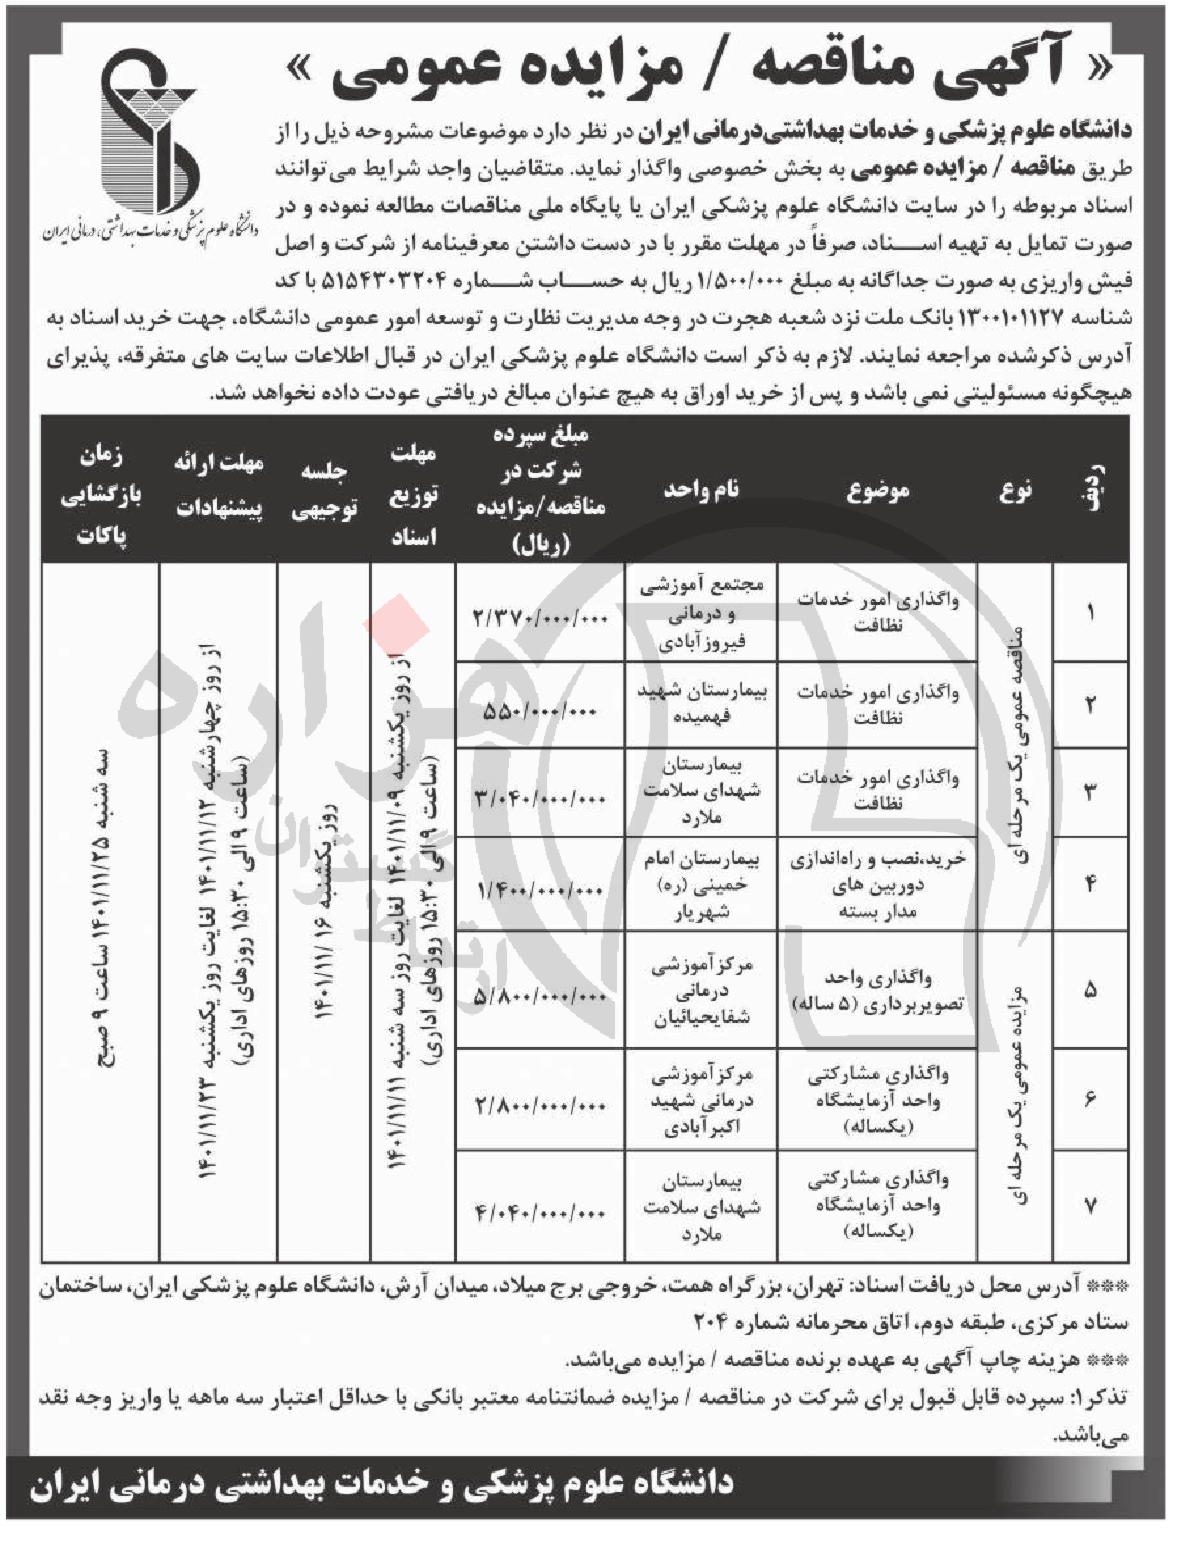 « آگهی مناقصه / مزایده عمومی »
دانشگاه علوم پزشکی و خدمات بهداشتی، درمانی ایران
دانشگاه علوم پزشکی و خدمات بهداشتی درمانی ایران در نظر دارد موضوعات مشروحه ذیل را از
طریق مناقصه / مزایده عمومی به بخش خصوصی واگذار نماید. متقاضیان واجد شرایط می توانند
اسناد مربوطه را در سایت دانشگاه علوم پزشکی ایران یا پایگاه ملی مناقصات مطالعه نموده و در
صورت تمایل به تهیه اسناد، صرفاً در مهلت مقرر با در دست داشتن معرفینامه از شرکت و اصل
فیش واریزی به صورت جداگانه به مبلغ ۱/۵۰۰/۰۰۰ ریال به حساب شماره ۵۱۵۴۳۰۳۲۰۴ با کد
شناسه ۱۳۰۰۱۰۱۱۲۷ بانک ملت نزد شعبه هجرت در وجه مدیریت نظارت و توسعه امور عمومی دانشگاه، جهت خرید اسناد به
آدرس ذکرشده مراجعه نمایند. لازم به ذکر است دانشگاه علوم پزشکی ایران در قبال اطلاعات سایت های متفرقه، پذیرای
هیچگونه مسئولیتی نمی باشد و پس از خرید اوراق به هیچ عنوان مبالغ دریافتی عودت داده نخواهد شد.
ردیف
نوع
موضوع
نام واحد
مبلغ سپرده
شرکت در
مناقصه/مزایده
(ریال)
مهلت
توزیع
اسناد
جلسه
توجیهی
مهلت ارائه
پیشنهادات
زمان
بازگشایی
پاکات
۱
مناقصه عمومی یک مرحله ای
واگذاری امور خدمات
نظافت
مجتمع آموزشی
و درمانی
فیروزآبادی
۲/۳۷۰/۰۰۰/۰۰۰
از روز یکشنبه ۱۴۰۱/۱۱/۰۹ لغایت روز سه شنبه ۱۴۰۱/۱۱/۱۱
(ساعت ۹ الی ۱۵:۳۰ روزهای اداری)
روز یکشنبه ۱۴۰۱/۱۱/۱۶
از روز چهارشنبه ۱۴۰۱/۱۱/۱۲ لغایت روز یکشنبه ۱۴۰۱/۱۱/۲۳
(ساعت ۹ الی ۱۵:۳۰ روزهای اداری)
سه شنبه ۱۴۰۱/۱۱/۲۵ ساعت ۹ صبح
۲
واگذاری امور خدمات
نظافت
بیمارستان شهید
فهمیده
۵۵۰/۰۰۰/۰۰۰
۳
واگذاری امور خدمات
نظافت
بیمارستان
شهدای سلامت
ملارد
۳/۰۴۰/۰۰۰/۰۰۰
۴
خرید،نصب و راه‌اندازی
دوربین های
مدار بسته
بیمارستان امام
خمینی (ره)
شهریار
۱/۴۰۰/۰۰۰/۰۰۰
۵
مزایده عمومی یک مرحله ای
واگذاری واحد
تصویربرداری (۵ ساله)
مرکز آموزشی
درمانی
شفایحیائیان
۵/۸۰۰/۰۰۰/۰۰۰
۶
واگذاری مشارکتی
واحد آزمایشگاه
(یکساله)
مرکز آموزشی
درمانی شهید
اکبرآبادی
۲/۸۰۰/۰۰۰/۰۰۰
۷
واگذاری مشارکتی
واحد آزمایشگاه
(یکساله)
بیمارستان
شهدای سلامت
ملارد
۴/۰۴۰/۰۰۰/۰۰۰
هزاره
گستران
ارتباط
*** آدرس محل دریافت اسناد: تهران، بزرگراه همت، خروجی برج میلاد، میدان آرش، دانشگاه علوم پزشکی ایران، ساختمان
ستاد مرکزی، طبقه دوم، اتاق محرمانه شماره ۲۰۴
*** هزینه چاپ آگهی به عهده برنده مناقصه / مزایده می‌باشد.
تذکر۱: سپرده قابل قبول برای شرکت در مناقصه / مزایده ضمانتنامه معتبر بانکی با حداقل اعتبار سه ماهه یا واریز وجه نقد
می‌باشد.
دانشگاه علوم پزشکی و خدمات بهداشتی درمانی ایران